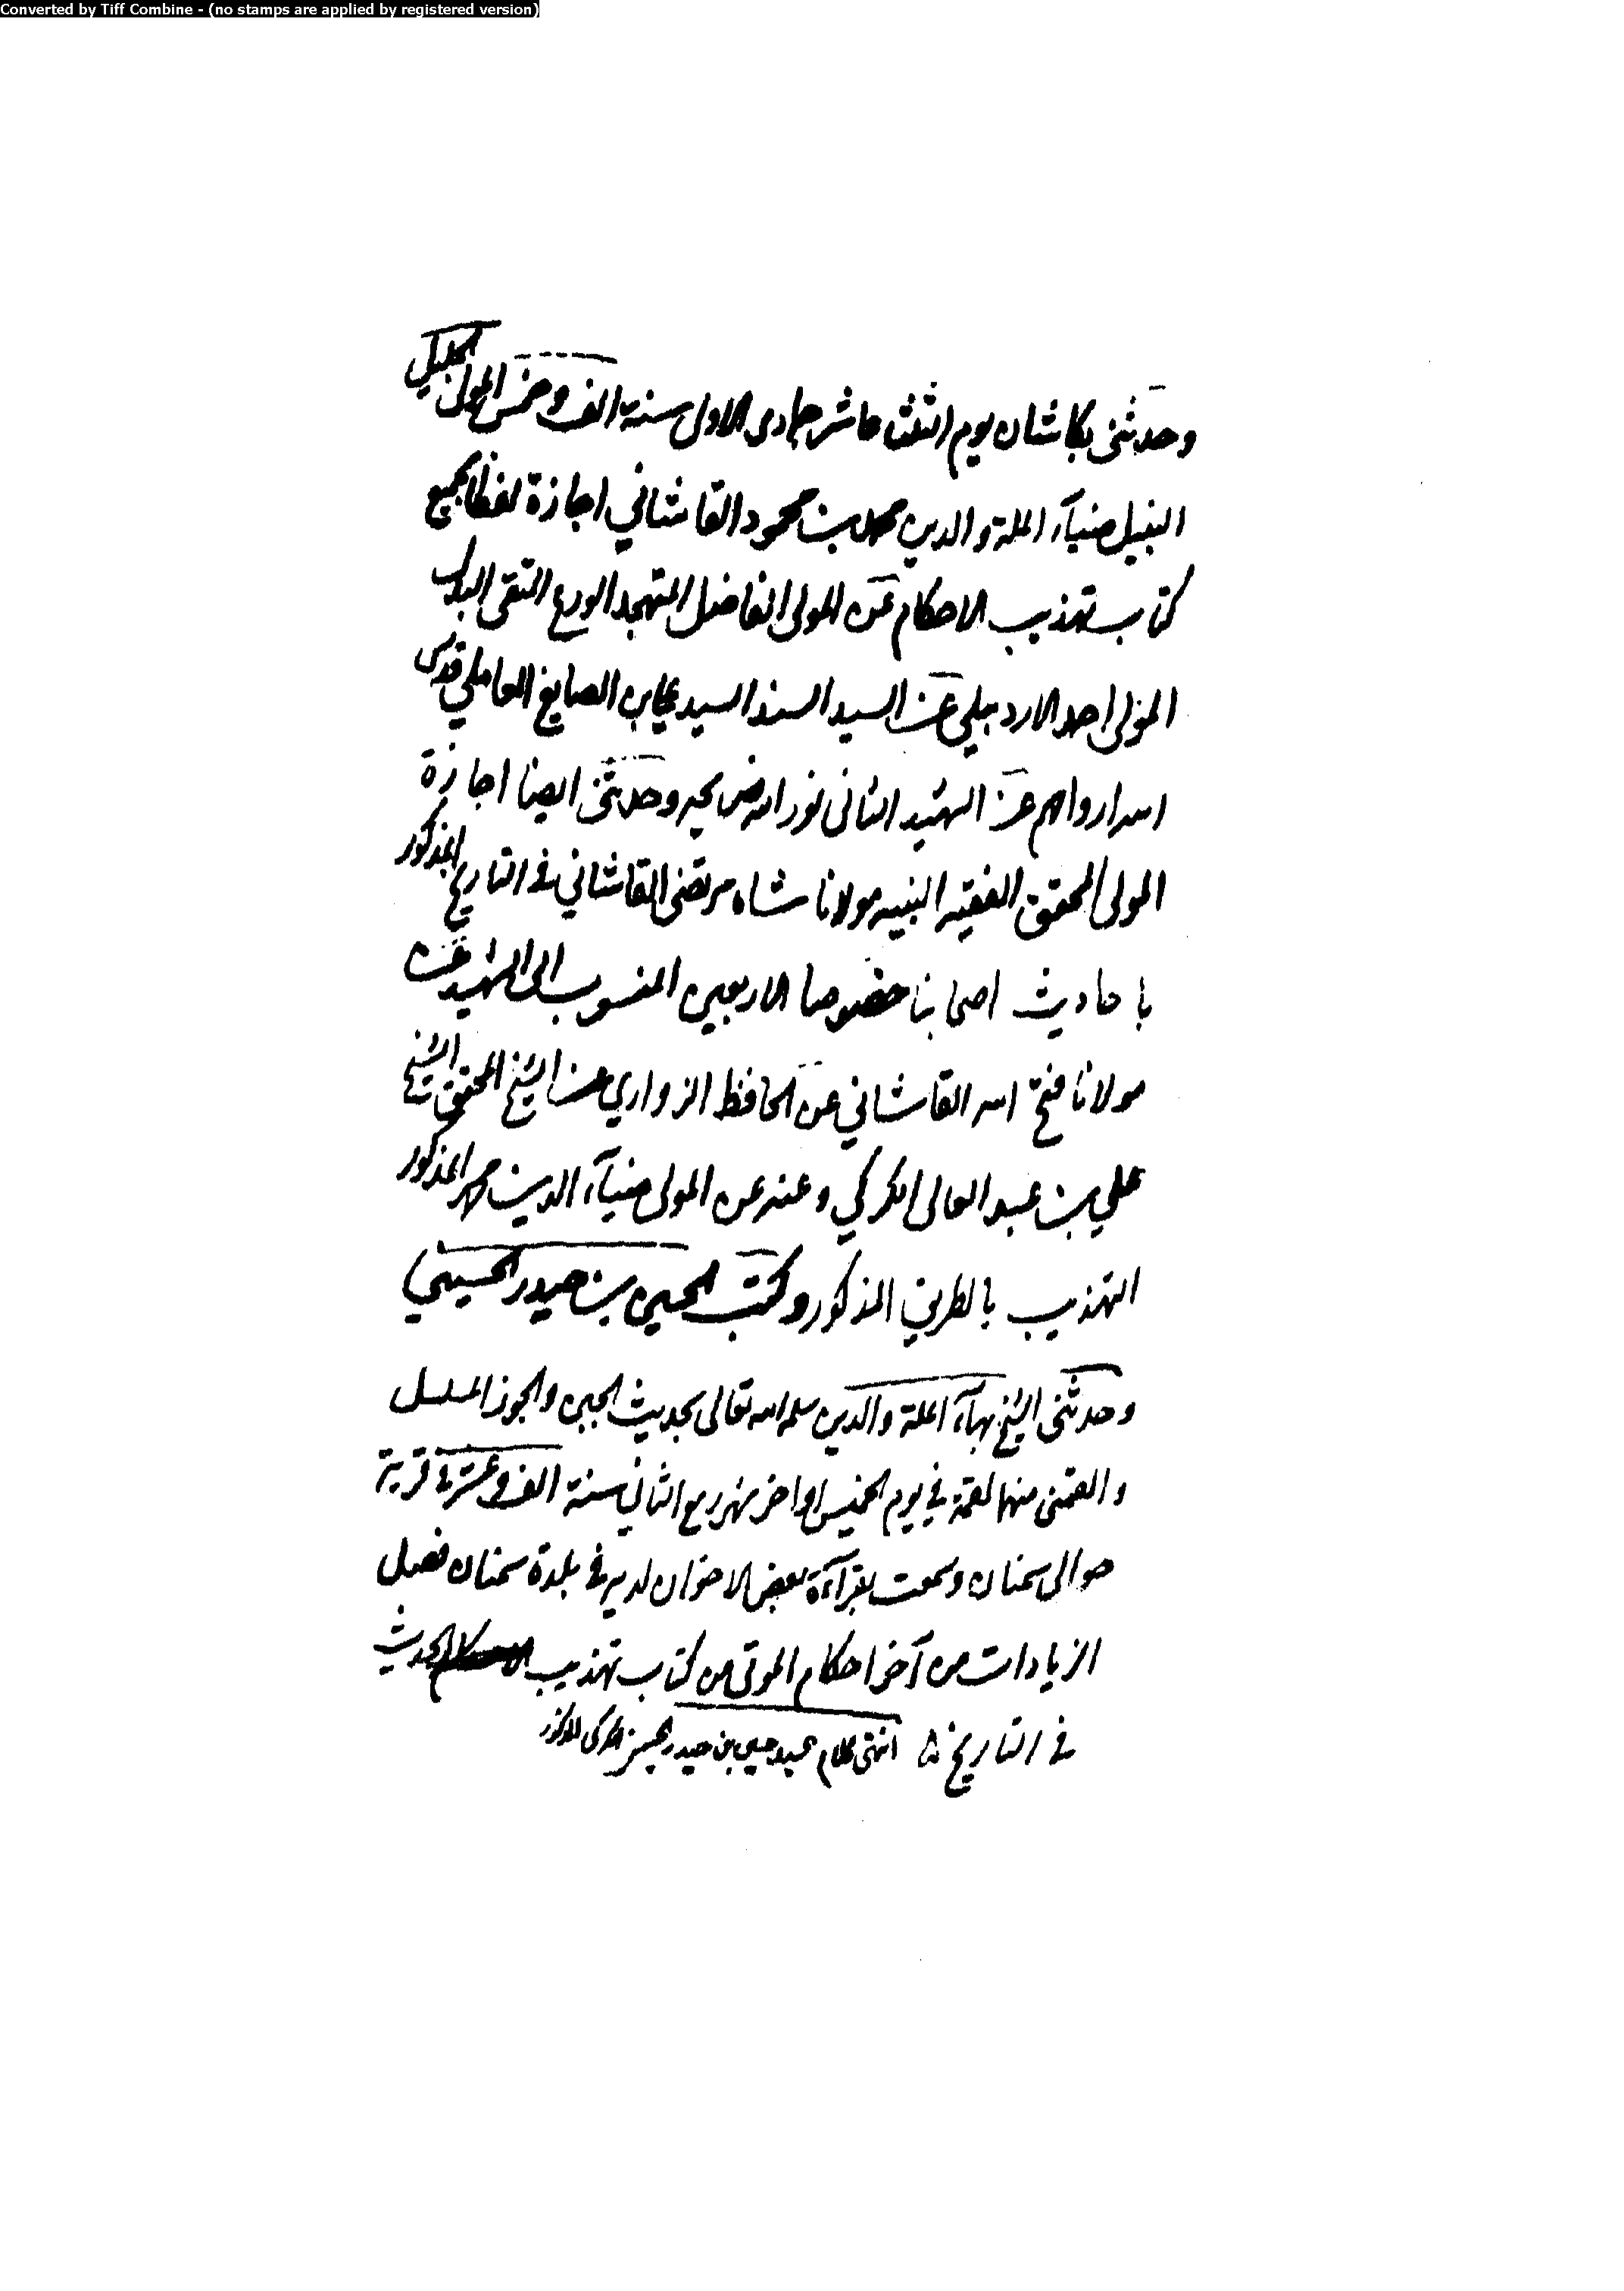 Converted by Tiff Combine - (no stamps are applied by registered version)
وحدثنى بكاشان يوم الثلث عاشر جمادى الاول سنة الف وخمس المولى الجليل
النبيل ضيآء الملة والدين محمد بن محمود القاشاني اجازة لفظا بجميع
كتاب تهذيب الاحكام عن المولى الفاضل المتهجد الورع التقى البدل
المولى احمد الاردبيلي عن السيد السند السيد على بن الصايغ العاملي قدس
الله ارواحهم عن الشهيد الثانى نور الله ضريحه وحدثنى ايضا اجازة
المولى المحقق الفقيه النبيه مولانا شاه مرتضى القاشاني فى التاريخ المذكور
باحاديث اصحابنا خصوصا الاربعين المنسوب الى الشهيد عن
مولانا فتح الله القاشاني عن الحافظ الزواري عن الشيخ المحقق الشيخ
علي بن عبد العالى الكركي وعنه عن المولى ضيآء الدين محمد المذكور
التهذيب بالطريق المذكور وكتب الحسين بن حيدر الحسيني
وحدثنى الشيخ بهآء الملة والدين سلمه الله تعالى بحديث الجبن والجوز المسلسل
والقمنى منهما لقمة في يوم الخميس اواخر شهر ربيع الثاني سنة الف وعشر فى قرية
حوالى سمنان وسمعت بقرآءة بعض الاخوان لديه فى بلدة سمنان فصل
الزيادات من آخر احكام الموتى من كتاب تهذيب الحديث
فى التاريخ انتهى كلام السيد حسين بن حيدر الحسيني الكركى المذكور